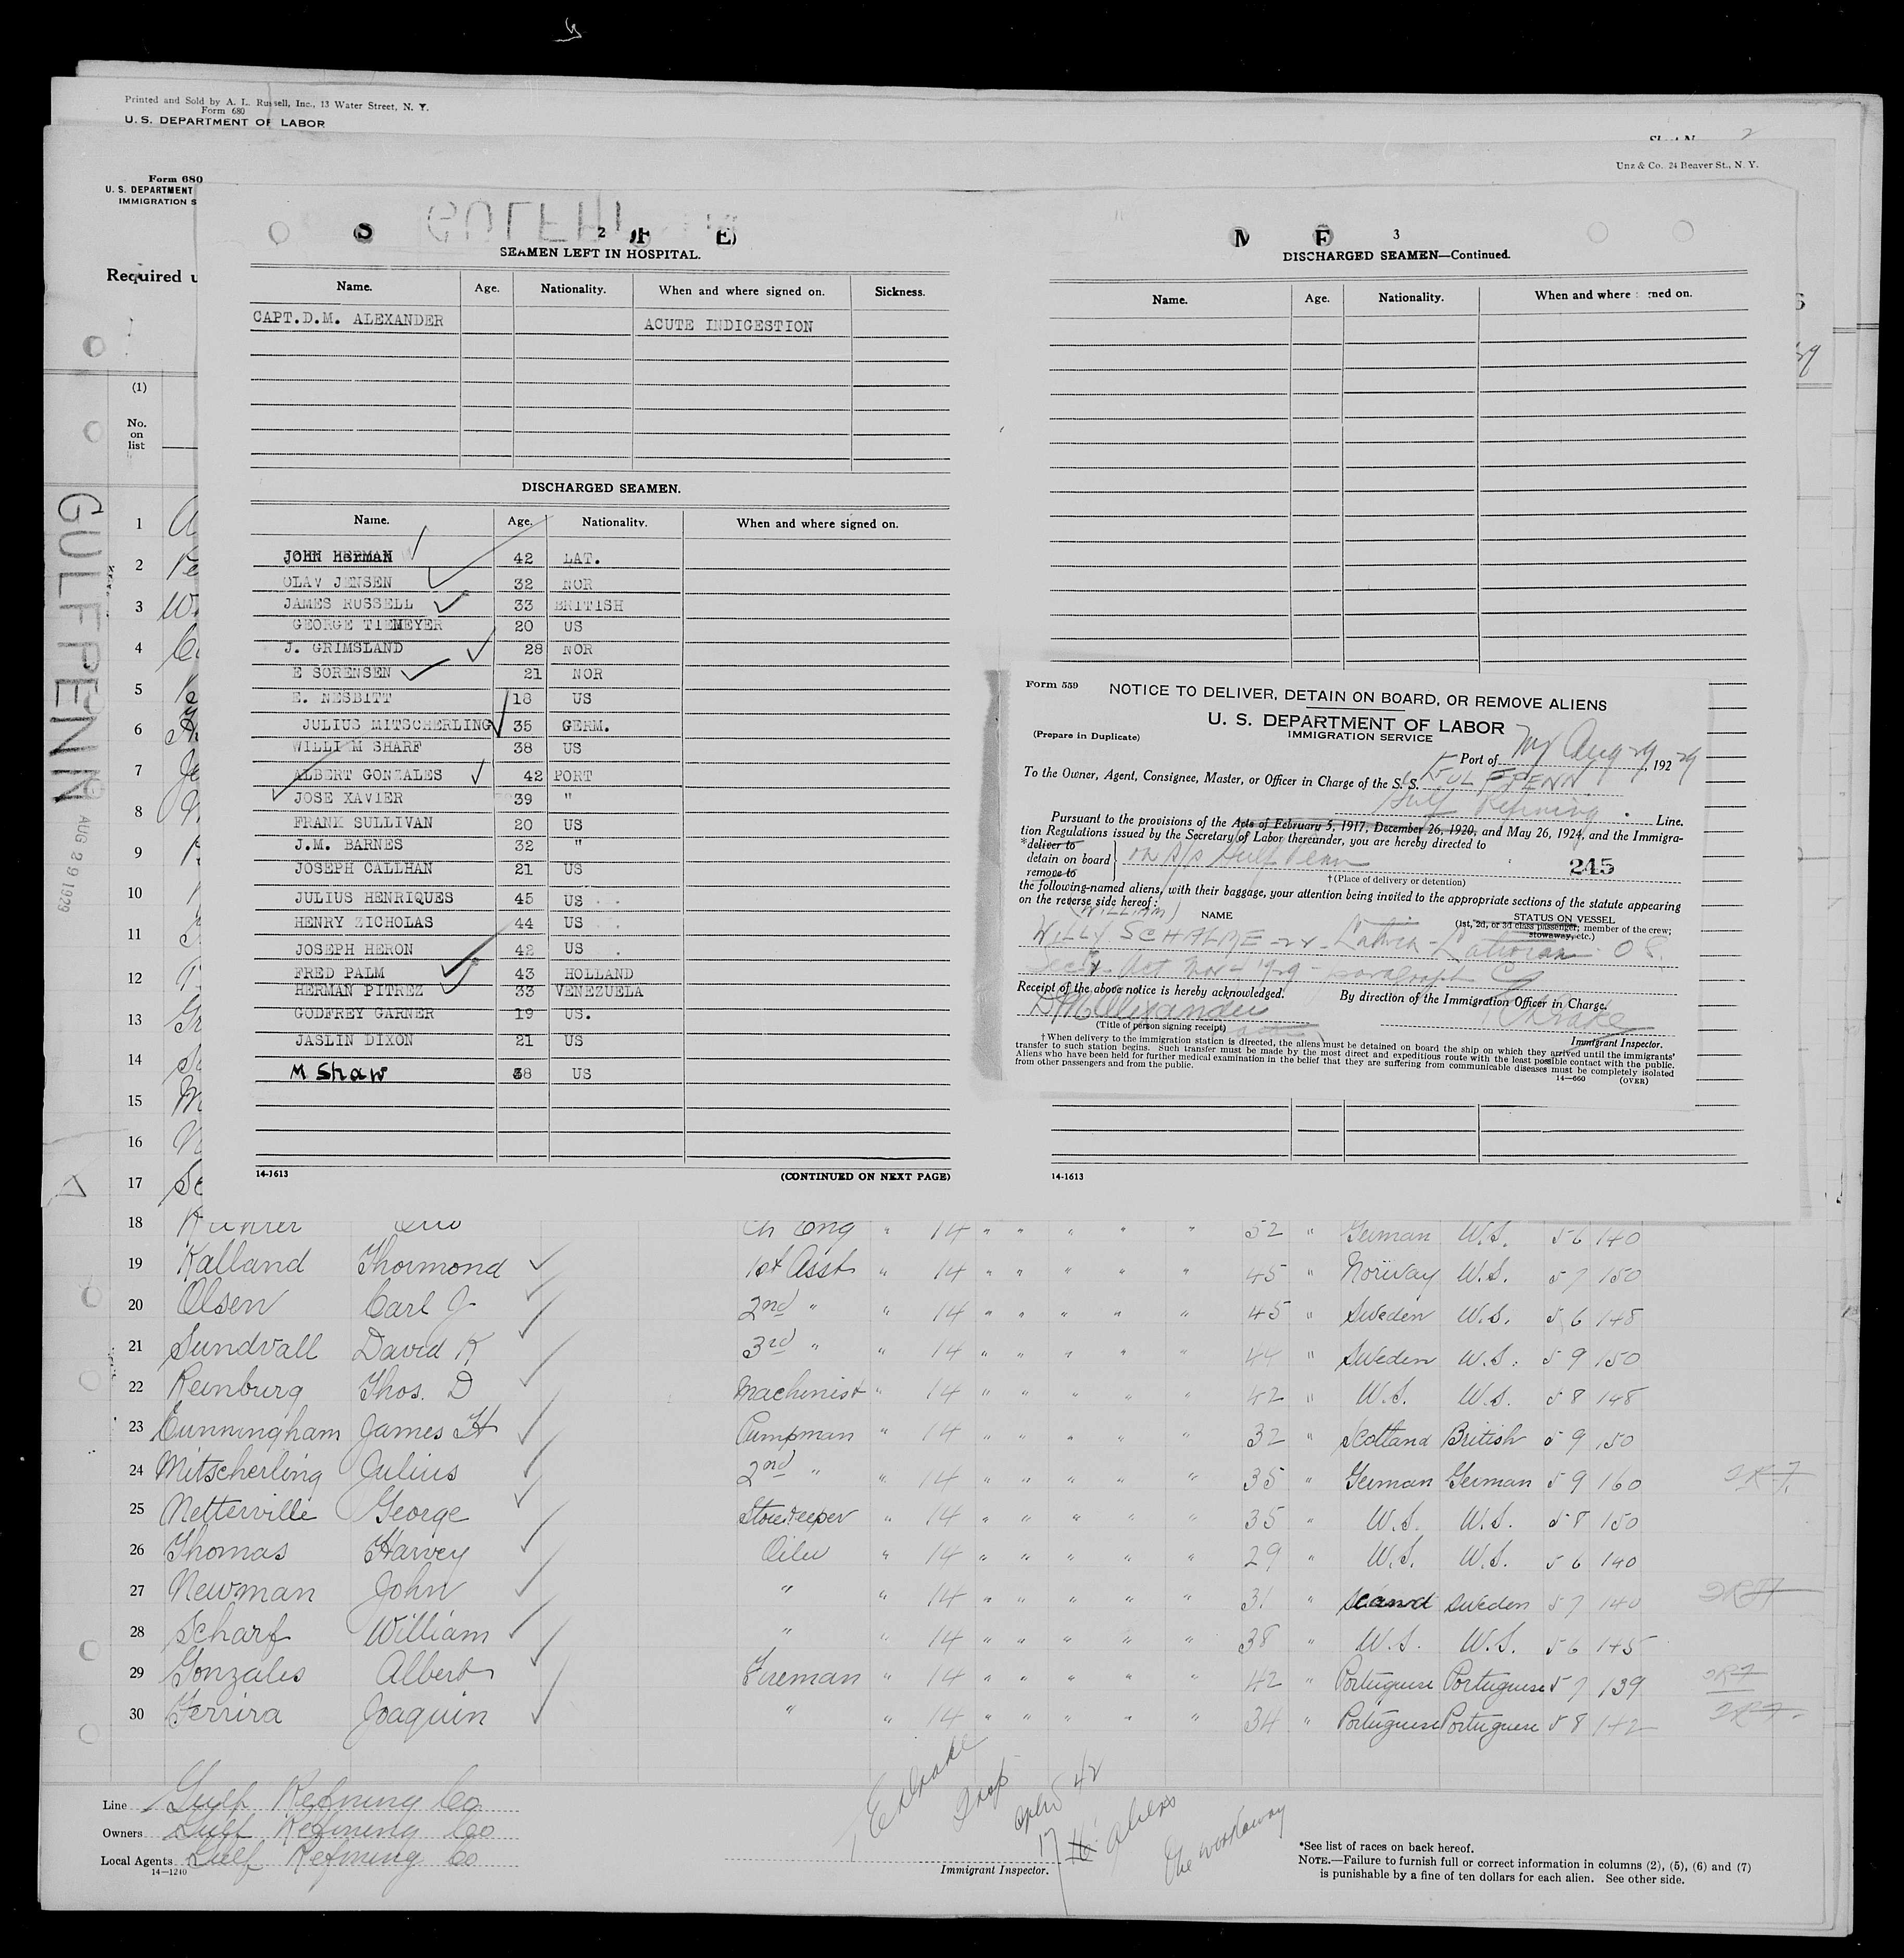 Printed and Sold by A. L. Russell, Inc., 13 Water Street, N. Y.
Form 680
U. S. DEPARTMENT OF LABOR
2
Unz & Co. 24 Beaver St., N. Y.
Form 680
U. S. DEPARTMENT
IMMIGRATION S
Required u
(1)
No. on list
GULFPENN
AUG 29 1929
2
SEAMEN LEFT IN HOSPITAL.
Name. Age. Nationality. When and where signed on. Sickness.
CAPT.D.M. ALEXANDER ACUTE INDIGESTION
DISCHARGED SEAMEN.
Name. Age. Nationality. When and where signed on.
JOHN HERMAN 42 LAT.
OLAV JENSEN 32 NOR
JAMES RUSSELL 33 BRITISH
GEORGE TIEMEYER 20 US
J. GRIMSLAND 28 NOR
E SORENSEN 21 NOR
E. NESBITT 18 US
JULIUS MITSCHERLING 35 GERM.
WILLI M SHARF 38 US
ALBERT GONZALES 42 PORT
JOSE XAVIER 39 "
FRANK SULLIVAN 20 US
J.M. BARNES 32 "
JOSEPH CALLHAN 21 US
JULIUS HENRIQUES 45 US
HENRY ZICHOLAS 44 US
JOSEPH HERON 42 US
FRED PALM 43 HOLLAND
HERMAN PITREZ 33 VENEZUELA
GODFREY GARNER 19 US.
JASLIN DIXON 21 US
M Shaw 38 US
14-1613 (CONTINUED ON NEXT PAGE)
3
DISCHARGED SEAMEN—Continued.
Name. Age. Nationality. When and where ned on.
14-1613
Form 559
NOTICE TO DELIVER, DETAIN ON BOARD, OR REMOVE ALIENS
U. S. DEPARTMENT OF LABOR
IMMIGRATION SERVICE
(Prepare in Duplicate)
Port of NY Aug 29, 1929
To the Owner, Agent, Consignee, Master, or Officer in Charge of the S. S. GULFPENN
Gulf Refining Line.
Pursuant to the provisions of the Acts of February 5, 1917, December 26, 1920, and May 26, 1924, and the Immigra-
tion Regulations issued by the Secretary of Labor thereunder, you are hereby directed to
*deliver to
detain on board on S/S Gulf Penn 245
remove to
† (Place of delivery or detention)
the following-named aliens, with their baggage, your attention being invited to the appropriate sections of the statute appearing
on the reverse side hereof:
(WILLIAM)
NAME STATUS ON VESSEL
(1st, 2d, or 3d class passenger; member of the crew; stowaway, etc.)
WILLY Latvia - O S.
paragraph
Receipt of the above notice is hereby acknowledged. By direction of the Immigration Officer in Charge.
DM Alexander E Drake
(Title of person signing receipt)
Immigrant Inspector.
† When delivery to the immigration station is directed, the aliens must be detained on board the ship on which they arrived until the immigrants'
transfer to such station begins. Such transfer must be made by the most direct and expeditious route with the least possible contact with the public.
Aliens who have been held for further medical examination in the belief that they are suffering from communicable diseases must be completely isolated
from other passengers and from the public.
14—660 (OVER)
1
2
3
4
5
6
7
8
9
10
11
12
13
14
15
16
17
18 Ch Eng " 14 " " " " " 52 " German U.S. 5 6 140
19 Kalland Thormond 1st Asst " 14 " " " " " 45 " Norway U.S. 5 7 150
20 Olsen Carl J 2nd " " 14 " " " " " 45 " Sweden U.S. 5 6 148
21 Sundvall David K 3rd " " 14 " " " " " 44 " Sweden U.S. 5 9 150
22 Reinburg Thos. D Machinist " 14 " " " " " 42 " U.S. U.S. 5 8 148
23 Cunningham James H Pumpman " 14 " " " " " 32 " Scotland British 5 9 150
24 Mitscherling Julius 2nd " " 14 " " " " " 35 " German German 5 9 160
25 Netterville George Storekeeper " 14 " " " " " 35 " U.S. U.S. 5 8 150
26 Thomas Harvey Oiler " 14 " " " " " 29 " U.S. U.S. 5 6 140
27 Newman John " " 14 " " " " " 31 " Scand Sweden 5 7 140
28 Scharf William " " 14 " " " " " 38 " U.S. U.S. 5 6 145
29 Gonzales Albert Fireman " 14 " " " " " 42 " Portuguese Portuguese 5 7 139
30 Ferrira Joaquin " " 14 " " " " " 34 " Portuguese Portuguese 5 8 142
Line Gulf Refining Co
Owners Gulf Refining Co
Local Agents Gulf Refining Co
14—1240
E Drake
Insp
42
17 aliens
One workaway
Immigrant Inspector.
*See list of races on back hereof.
NOTE.—Failure to furnish full or correct information in columns (2), (5), (6) and (7)
is punishable by a fine of ten dollars for each alien. See other side.